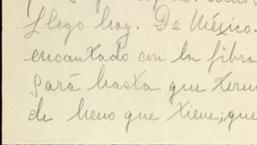 Llego hoy. De México.
encantado con la fibra
gará hasta que term
de heno que tiene; que